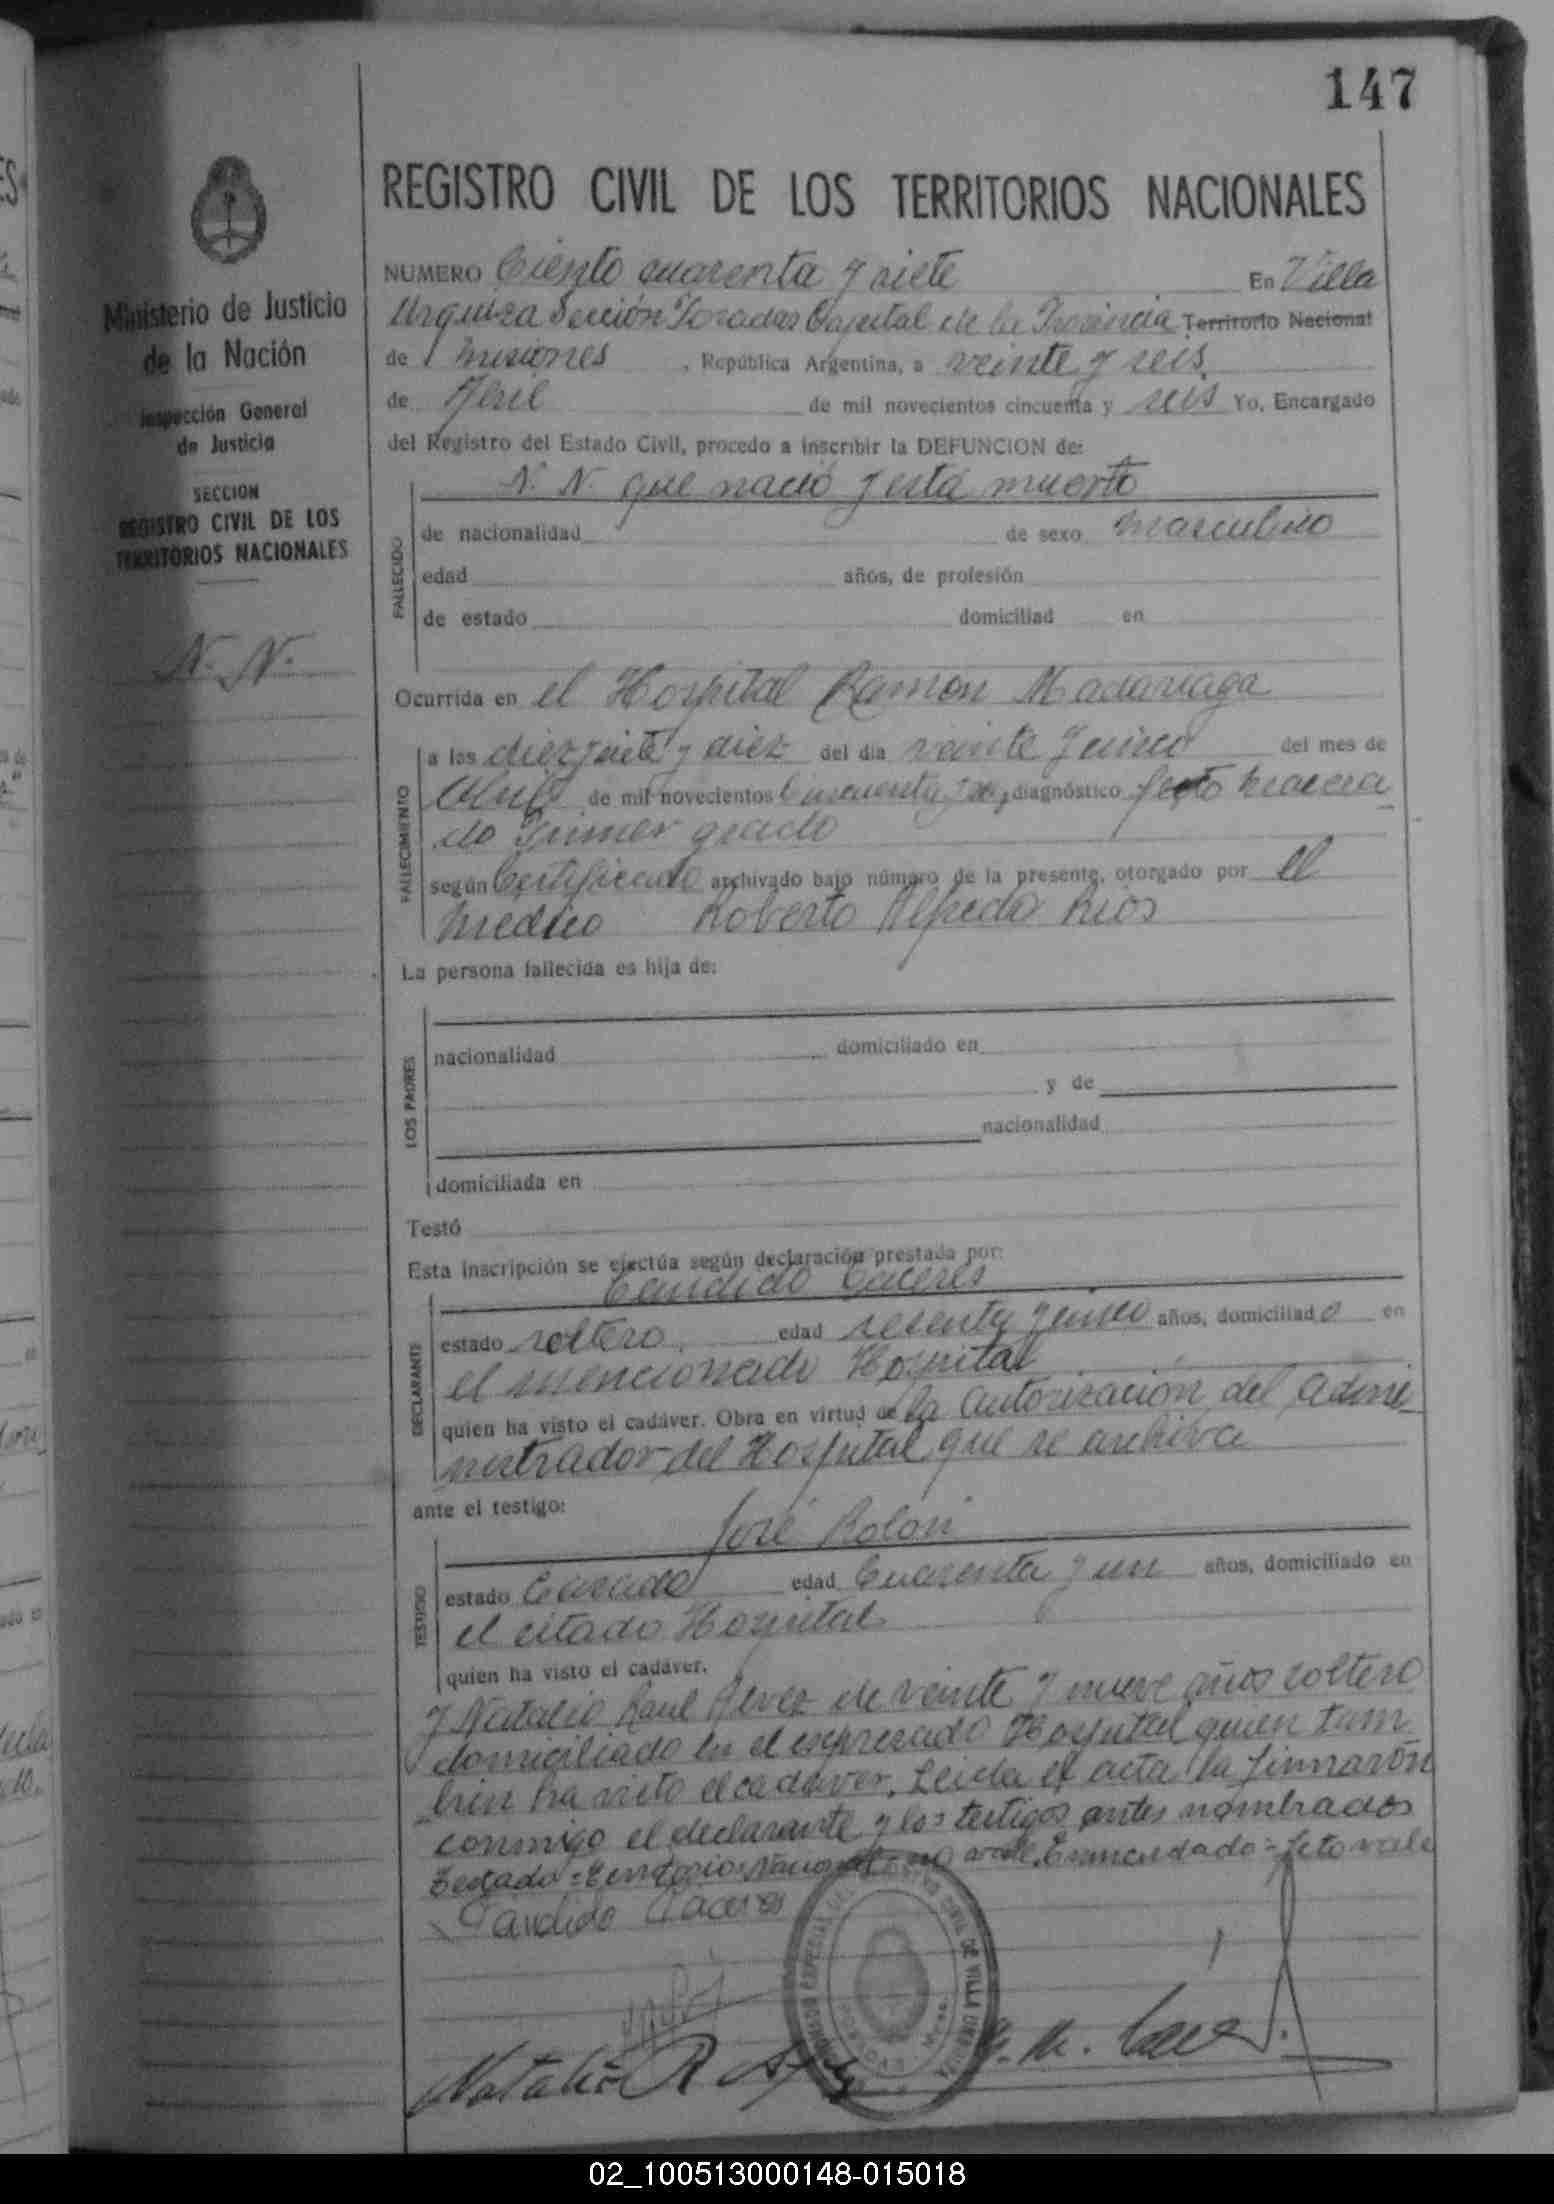 147
Ministerio de Justicia
de la Nación
Inspección General
de Justicia
SECCION
REGISTRO CIVIL DE LOS
TERRITORIOS NACIONALES
N. N.
REGISTRO CIVIL DE LOS TERRITORIOS NACIONALES
NUMERO Ciento cuarenta y siete En Villa
Urquiza Sección Posadas Capital de la Provincia Territorio Nacional
de Misiones, República Argentina, a veinte y seis
de Abril de mil novecientos cincuenta y seis Yo, Encargado
del Registro del Estado Civil, procedo a inscribir la DEFUNCION de:
N. N. que nació y está muerto
FALLECIDO
de nacionalidad de sexo masculino
edad años, de profesión
de estado domiciliad en
Ocurrida en el Hospital Ramon Madariaga
FALLECIMIENTO
a las diez y siete y diez del día veinte y cinco del mes de
Abril de mil novecientos cincuenta y seis, diagnóstico feto macera
do Primer grado
según Certificado archivado bajo número de la presente, otorgado por el
medico Roberto Alfredo Rios
La persona fallecida es hija de:
LOS PADRES
nacionalidad domiciliado en
y de
nacionalidad
domiciliada en
Testó
Esta inscripción se efectúa según declaración prestada por:
Candido Caceres
DECLARANTE
estado soltero, edad sesenta y cinco años, domiciliado en
el mencionado Hospital
quien ha visto el cadáver. Obra en virtud de la autorización del admi
nistrador del Hospital que se archiva
ante el testigo:
José Rolon
TESTIGO
estado Casado edad Cuarenta y un años, domiciliado en
el citado Hospital
quien ha visto el cadáver.
y Natalio Raul Alvez de veinte y nueve años soltero
domiciliado en el expresado Hospital quien tam
bien ha visto el cadaver. Leida el acta la firmarón
conmigo el declarante y los testigos antes nombrados
Testado = Territorio Nacional = no vale. Enmendado = feto vale
Candido Caceres
Natalio R
REGISTRO CIVIL DE VILLA URQUIZA
POSADAS
02_100513000148-015018